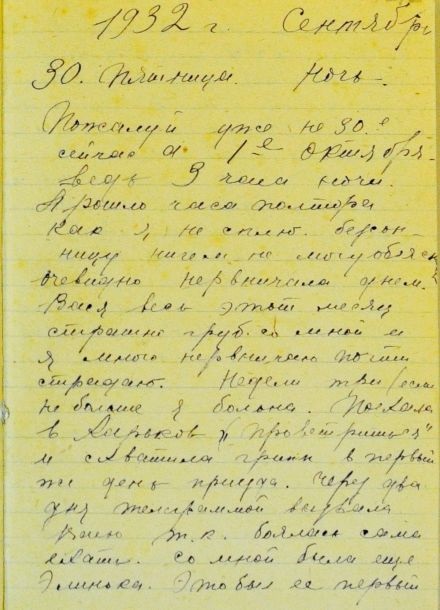 1932 г. Сентябрь
30. Пятница. Ночь.
Пожалуй уже не 30.е
сейчас а 1е октября.
Ведь 3 часа ночи.
Прошло часа полтора
как я не сплю. бессон-
ницу ничем не могу объясн
очевидно нервничала днем.
Вася весь этот месяц
страшно груб со мной и
я много нервничаю почти
страдаю. Недели три (если
не больше я больна. Поехала
в Харьков „проветриться"
и схватила грипп в первый
же день приезда. Через два
дня телеграммой вызвала
Васю т.к. боялась сама
ехать. со мной была еще
Элинока. Это был ее первый